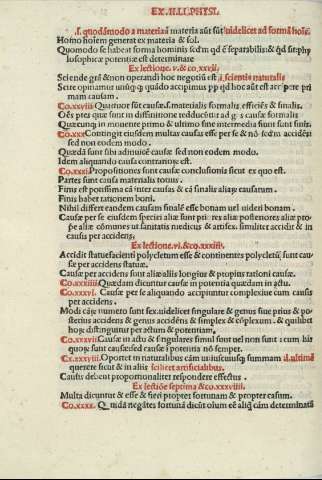 EX .II.LI.PHYSI.
.s. quodãmodo a materiam materia aut sũt uidelicet ad formã hoĩs.
Homo hoĩem generat ex materia & sol.
Quomodo se habeat forma hominis scdm qd ẽ separabilis & qd sit phy
losophicæ potentiæ est determinate
Ex lectione .v. & co.xxvii.
Sciẽdi grã & non operandi hoc negotiũ est .i. scientia naturalis
Scire opinamur unũqq quãdo accipimus pp qd hoc aut est accipere pri
mam causam.
Co.xxviii. Quattuor sũt causæ .s. materialis formalis efficiẽs & finalis.
Oẽs præ quæ sunt in diffinitione reducũtur ad gs causæ formalis
Quæcunq in mouente primo & ultimo fine sunt intermedia fiunt sunt finis.
Co.xxx. Contingit eiusdem multas causas esse per se & nõ scdm accidẽs
sed non eodem modo.
Quædã sunt sibi adinuicẽ causæ sed non eodem modo.
Idem aliquando causa contrariorum est.
Co.xxxi. Propositiones sunt causæ conclusionis sicut ex quo est.
Partes sunt causa materialis totius.
Finis est potissima cã inter causas & cã finalis aliaƺ causarum.
Finis habet rationem boni.
Nihil differt eandem causam finalẽ esse bonam uel uideri bonam.
Causæ per se eiusdem speciei aliæ sunt priores aliæ posteriores aliæ pro
pẽ aliæ cõmunes ut sanitatis medicus & artifex. similiter accidit & in
causis per accidens.
Ex lectione .vi. & co.xxxiii.
Accidit statuefacienti polycletum esse & continentes polycletũ sunt cau
sæ per accidens statuæ.
Causæ per accidens sunt aliæ aliis longius & propius rationi causæ.
Co.xxxiiii. Quædam dicuntur causæ in potentia quædam in actu.
Co.xxxvi. Causæ per se aliquando accipiuntur complexiue cum causis
per accidens.
Modi cãƺ numero sunt sex .uidelicet singulare & genus siue prius & po
sterius accidens & genus accidẽtis & simplex & cõplexum. & quilibet
hoƺ distinguitur per actum & potentiam.
Co.xxxvii. Causæ in actu & singulares simul sunt uel non sunt cum his
quoƺ sunt causæ sed causæ i potentia nõ semper.
Co.xxxviii. Oportet in naturalibus cãm uniuscuiusq summam .i. ultimã
querere sicut & in aliis scilicet artificialibus.
Causis debent proportionaliter respondere effectus.
Ex lectiõe septima & co.xxxviiii.
Multa dicuntur & esse & fieri propter fortunam & propter casum.
Co.xxxx. Quidã negãtes fortunã dicũt olum eẽ aliq cãm determinatã